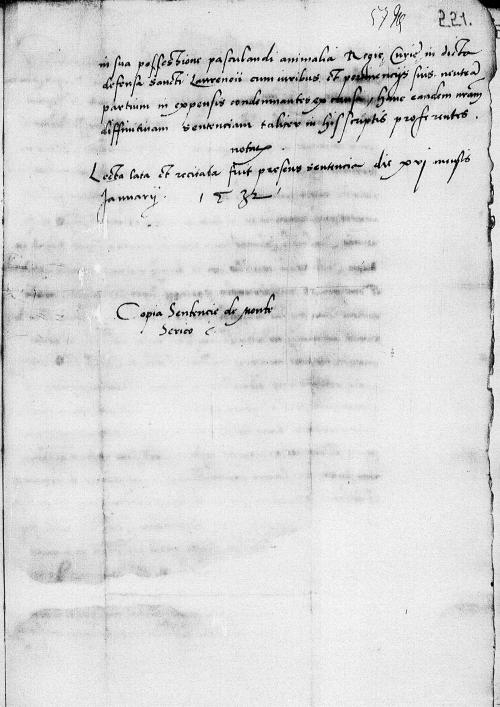 221.
in sua possessione pasculandi animalia Regie Curie in dicta
defensa Sancti Laurencii cum iuribus et pertinencijs suis neutra
partium in expensis condemnantes ex causa, hanc eandem nram
diffinitivam sentenciam taliter in his scriptis proferentes.
Lecta lata et recitata fuit presens sentencia die xvi mensis
Januarij. 1532
Copia Sentencie de monte
Serico